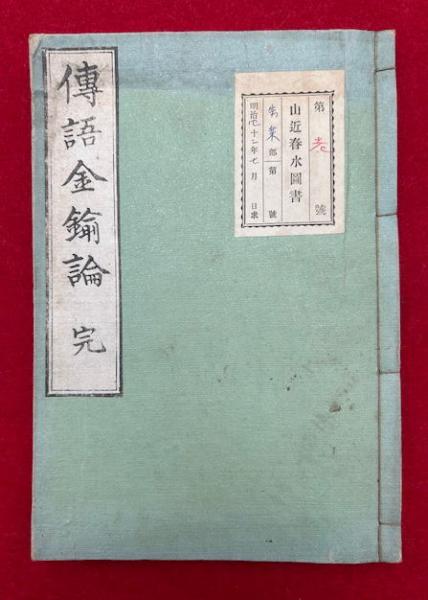 傳語金鍮論 完
第 號
山近春水圖書
部第 號
明治四十二年七月 日求